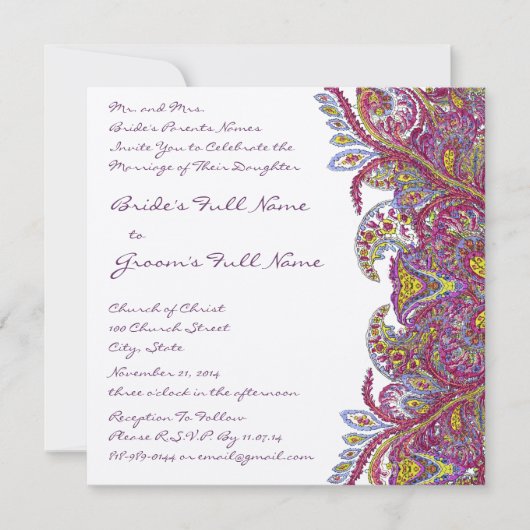 Mr. and Mrs.
Bride's Parents Names
Invite You to Celebrate the
Marriage of Their Daughter
Bride's Full Name
to
Groom's Full Name
Church of Christ
100 Church Street
City, State
November 21, 2014
three o'clock in the afternoon
Reception To Follow
Please R.S.V.P. By 11.07.14
818-989-0144 or email@gmail.com